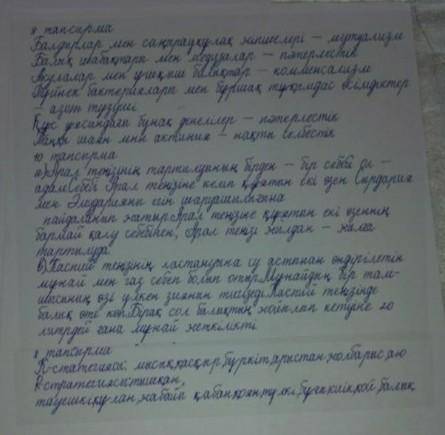 9 тапсырма
Балдырлар мен саңырауқұлақ жіпшелері – мутуализм
Балық шабақтары мен медузалар – пәтерлестік
Акулалар мен ұшқыш балықтар – комменсализм
Түйнек бактериялары мен бұршақ тұқымдас өсімдіктер
– азот түзуші
Құс ұясындағы бунақ денелілер – пәтерлестік
Таңқы шаян мен актиния – нақты селбестік
10 тапсырма
а) Арал теңізінің тартылуының бірден – бір себебі ол –
адам. Себебі Арал теңізіне келіп құятын екі өзен Сырдария
мен Әмударияны егін шаруашылығына
пайдаланып жатыр. Арал теңізіне құятын екі өзеннің
бармай қалу себебінен, Арал теңізі жылдан – жылға
тартылуда.
б) Каспий теңізінің ластануына су астынан өндірілетін
мұнай мен газ себеп болып отыр. Мұнайдың бір там-
шысының өзі үлкен зиянын тигізеді. Каспий теңізінде
балық өте көп. Бірақ сол балықтың жойылып кетуіне 20
литрдей ғана мұнай жеткілікті
8 тапсырма
К-стратегиясы: мысық, қасқыр, бүркіт, арыстан, жолбарыс, аю
R-стратегиясы: тышқан,
тауешкі, құлан, жабайы қабан, қоян, түлкі, бұғы, киік, қой, балық